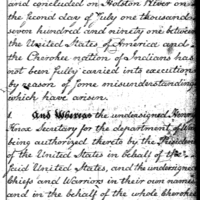 and concluded on Holston River on
the second day of July one thousand
seven hundred and ninety one between
the United States of America and
the Cherokee nation of Indians has
not been fully carried into execution
by reason of some misunderstanding
which have arisen.
1. And Whereas the undersigned Henry
Knox Secretary for the department of War
being authorized thereto by the President
of the United States in behalf of the
said United States, and the undersigned
Chiefs and Warriors in their own names
and in the behalf of the whole Cherokee